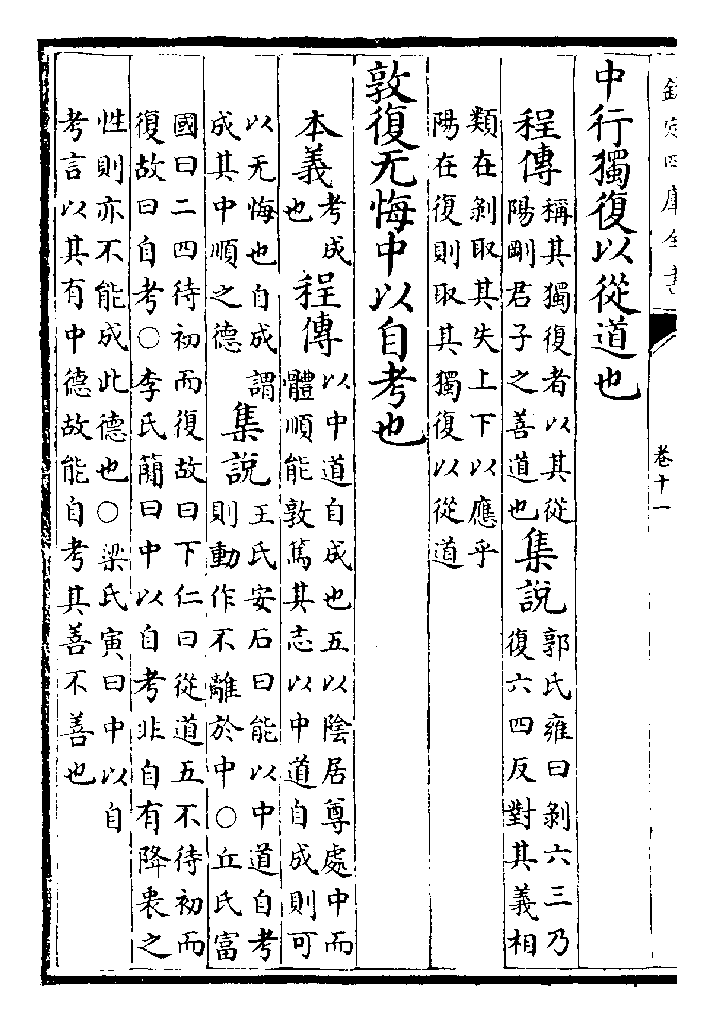 欽定四庫全書
卷十一
中行獨復以從道也
程傳
稱其獨復者以其從
陽剛君子之善道也
集說
郭氏雍曰剝六三乃
復六四反對其義相
類在剝取其失上下以應乎
陽在復則取其獨復以從道
敦復无悔中以自考也
本義
考成
也
程傳
以中道自成也五以陰居尊處中而
體順能敦篤其志以中道自成則可
以无悔也自成謂
成其中順之德
集說
王氏安石曰能以中道自考
則動作不離於中○丘氏富
國曰二四待初而復故曰下仁曰從道五不待初而
復故曰自考○李氏簡曰中以自考非自有降衷之
性則亦不能成此德也○梁氏寅曰中以自
考言以其有中德故能自考其善不善也